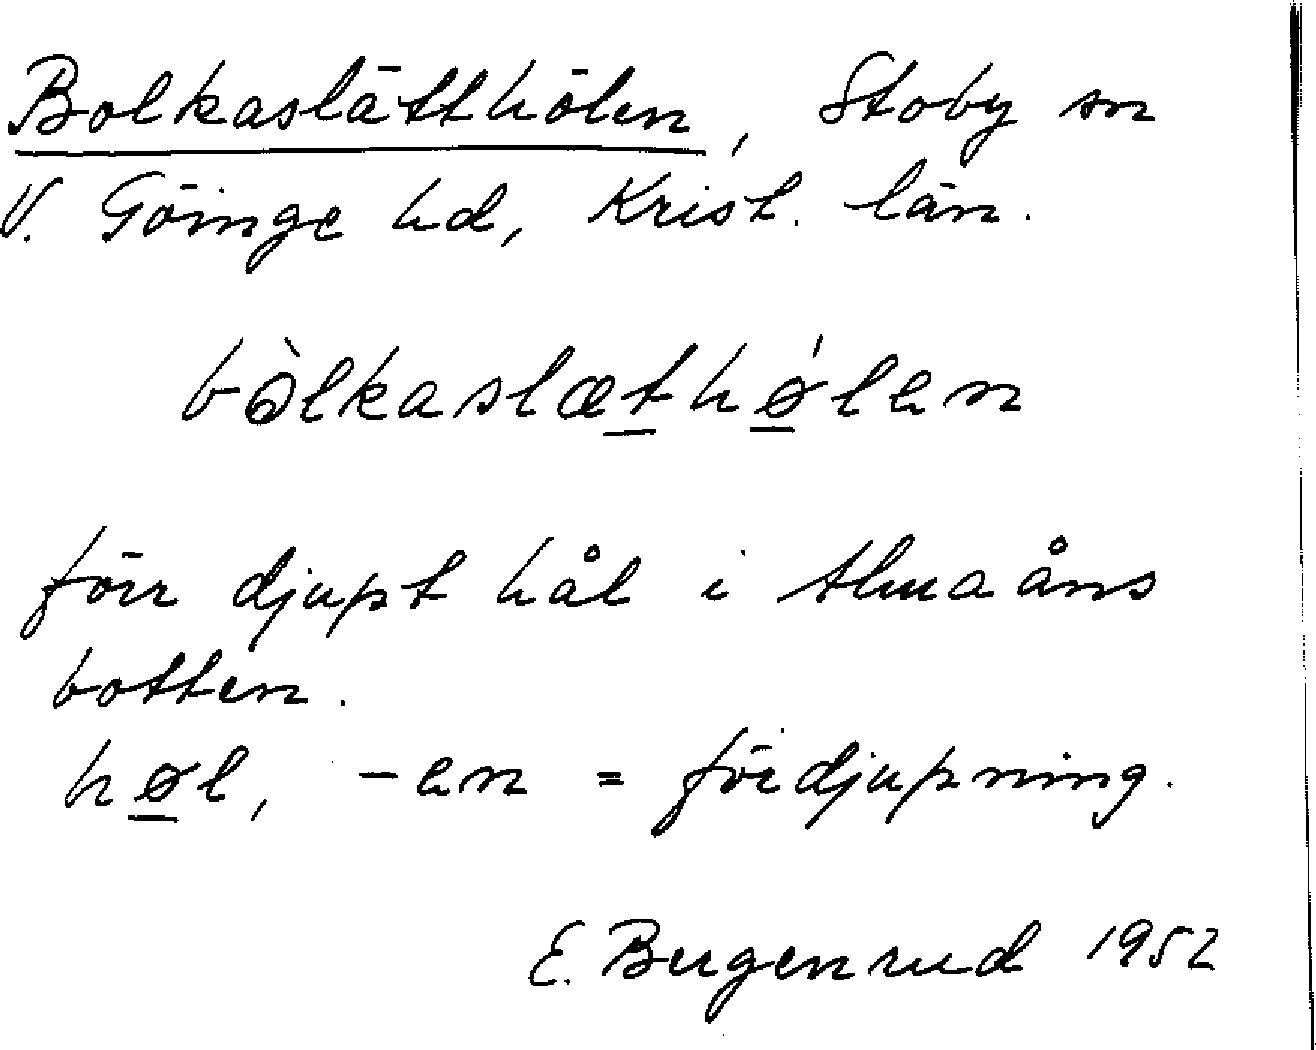 Bolkaslätthölen, Stoby sn
V. Göinge hd, Krist. län.
bòlkaslæthǿlen
förr djupt hål i Almaåns
botten.
høl, -en = fördjupning.
E. Bergenrud 1952